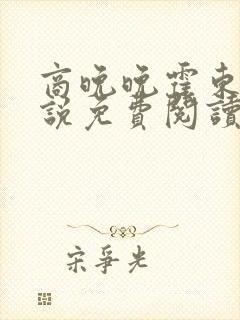 商晚晚霍東
說免費閱讀
宋爭光